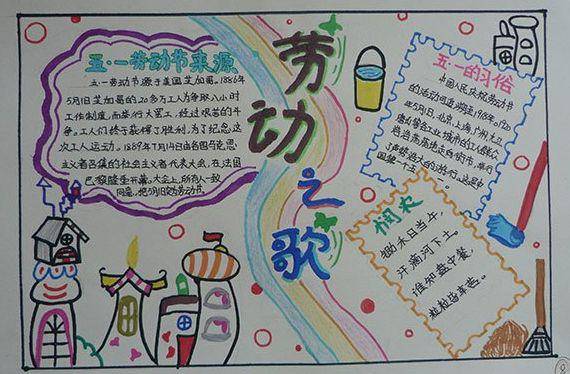 劳动之歌
五·一劳动节来源
五·一劳动节源于美国芝加哥。1886年
5月1日芝加哥的20多万工人为争取八小时
工作制度而举行大罢工,经过艰苦的斗
争。工人们终于获得了胜利,为了纪念这
次工人运动。1889年7月14日由各国马克思
主义者召集的社会主义者代表大会,在法国
巴黎隆重开幕,大会上,所有人一致
同意,把5月1日定为劳动节。
五·一的习俗
中国人民庆祝劳动节
的活动可追溯至1918年。1920
年5月1日,北京、上海、广州、九江
唐山等各工业城市的工人群众
浩浩荡荡地走向街市,举行
了声势浩大的游行,这是中
国第一个五一。
悯农
锄禾日当午,
汗滴河下土。
谁知盘中餐,
粒粒皆辛苦。
8